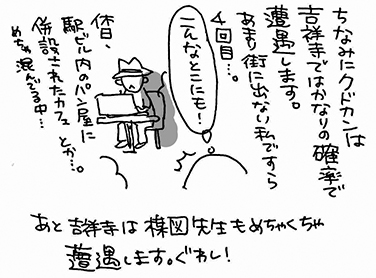 ちなみにクドカンは
吉祥寺ではかなりの確率で
遭遇します。
あまり街に出ない私ですら
4回目…。
こんなとこにも!
休日、
駅ビル内のパン屋に
併設されたカフェとか…。
めちゃ混んでる中…
あと吉祥寺は楳図先生もめちゃくちゃ
遭遇します。ぐわし!